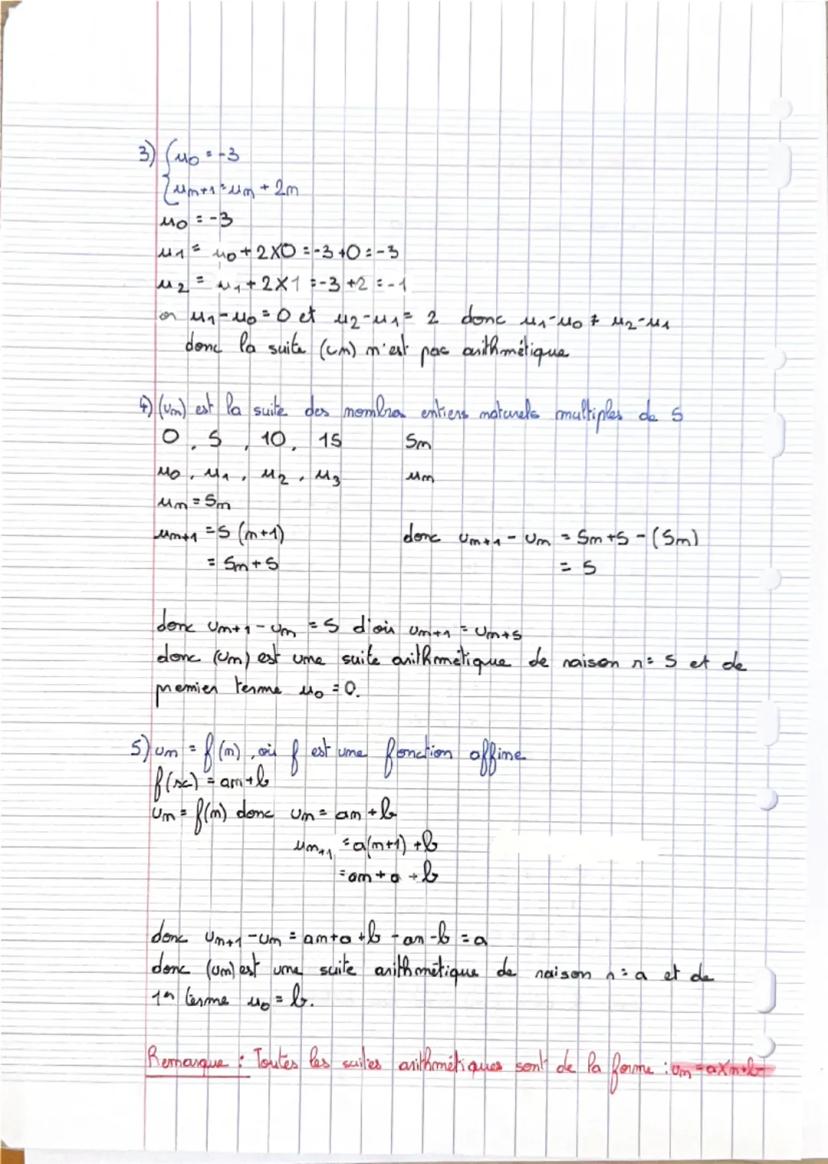 3) { u₀ = -3
{ uₙ₊₁ = uₙ + 2n
u₀ = -3
u₁ = u₀ + 2×0 = -3 + 0 = -3
u₂ = u₁ + 2×1 = -3 + 2 = -1
or u₁ - u₀ = 0 et u₂ - u₁ = 2 donc u₁ - u₀ ≠ u₂ - u₁
donc la suite (un) n'est pas arithmétique
4) (un) est la suite des nombres entiers naturels multiples de 5
0 , 5 , 10 , 15 5n
u₀ , u₁ , u₂ , u₃ un
un = 5n
uₙ₊₁ = 5 (n+1) donc uₙ₊₁ - uₙ = 5n + 5 - (5n)
= 5n + 5 = 5
donc uₙ₊₁ - uₙ = 5 d'où uₙ₊₁ = uₙ + 5
donc (un) est une suite arithmétique de raison r = 5 et de
premier terme u₀ = 0.
5) un = f(n) , où f est une fonction affine
f(x) = an + b
un = f(n) donc un = an + b
uₙ₊₁ = a(n+1) + b
= an + a + b
donc uₙ₊₁ - uₙ = an + a + b - an - b = a
donc (un) est une suite arithmétique de raison r = a et de
1er terme u₀ = b.
Remarque : Toutes les suites arithmétiques sont de la forme : un = a×n+b